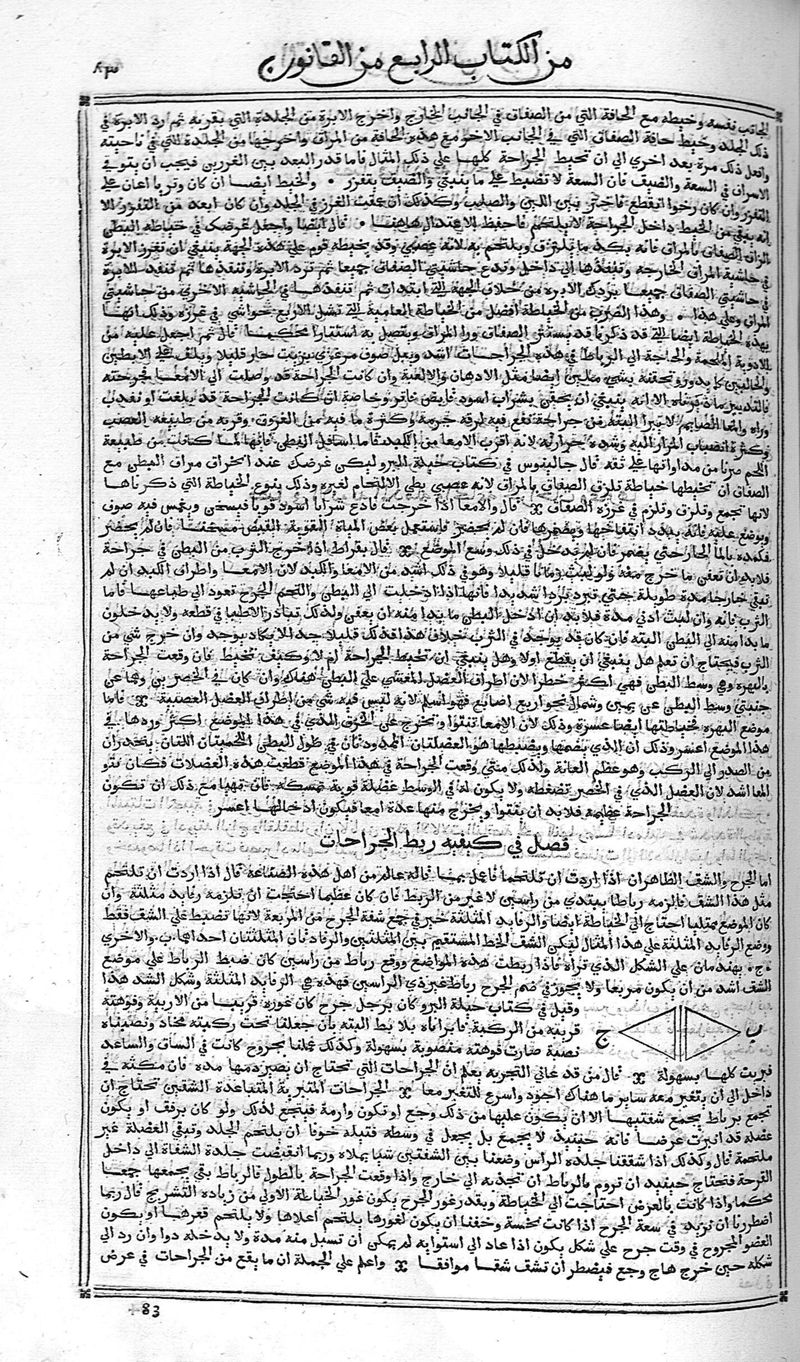 من الكتاب الرابع من القانون
٨٣
الجانب نفسه وخيطه مع الحافة التي من الصفاق في الجانب الخارج واخرج الابرة من الجلدة التي بقربه ثم رد الابرة في
ذلك الجلد وخيط حافة الصفاق التي في الجانب الاخر مع هذه الحافة من المراق واخرجها من الجلدة التي في ناحيته
وافعل ذلك مرة بعد اخري الي ان تخيط الجراحة كلها علي ذلك المثال فاما قدر البعد بين الغرزين فيجب ان يتوقي
الاسراف في السعة والضيق فان السعة لا تضبط علي ما ينبغي والضيق يتفزر والخيط ايضا ان كان وتريا اعان علي
التفزر وان كان رخوا انقطع فاختر بين اللين والصليب وكذلك ان عمقت الغرز في الجلد وان كان ابعد من التفزر الا
انه يبقي من الخيط داخل الجراحة لا يلتحم فاحفظ الاعتدال هاهنا قال ايضا واجعل غرضك في خياطة البطن
الزاق الصفاق بالمراق فانه بكد ما يلتزق ويلتحم به لانه عصبي وقد يخيطه قوم علي هذه الجهة ينبغي ان تغرز الابرة
في حاشية المراق الخارجة وتنفذها الي داخل وتدع حاشيتي الصفاق جميعا ثم ترد الابرة وتنفذها ثم تنفذ الابرة
في حاشيتي الصفاق جميعا بردك الابرة من خلاف الجهة التي ابتدات ثم تنفذها في الحاشية الاخري من حاشيتي
المراق وعلي هذا وهذا الضرب من الخياطة افضل من الخياطة العامية التي تشل الاربع حواشي في غرزة وذلك انها
بهذه الخياطة ايضا التي قد ذكرنا قد يستتر الصفاق وراء المراق ويتصل به استتارا محكما قال ثم اجعل عليه من
الادوية الملحمة والحاجة الي الرباط في هذه الجراحات اشد ويبل صوف مرعزي بزيت حار قليلا ويلف علي الابطين
والحالبين كما يدور ويحقنه بشي ملين ايضا مثل الادهان والالعبة وان كانت الجراحة قد وصلت الي الامعا فجرحته
فالتدبير ما ذكرناه الا انه ينبغي ان يحقن بشراب اسود قابض فاتر وخاصة ان كانت الجراحة قد بلغت او نفذت
وراه وامعا الصايم لا تبرا البتة من جراحة تقع فيه لرقة جرمه وكثرة ما فيه من العروق وقربه من طبيعة العصب
وكثرة انصباب المرار اليه وشدة حرارته لانه اقرب الامعا من الكبد فاما اسافل البطن فانها لما كانت من طبيعة
اللحم صرنا من مداواتها علي ثقة قال جالينوس في كتاب حيلة البرو ليكن غرضك عند انخراق مراق البطن مع
الصفاق ان تخيطها خياطة تلزق الصفاق بالمراق لانه عصبي بطي الالتحام لغيره وذلك بنوع الخياطة التي ذكرناها
لانها تجمع وتلزق وتلزم في غرزه الصفاق قال والامعا اذا خرجت فادع شرابا اسود قويا فيسخن ويغمس فيه صوف
ويوضع عليه فانه يبدد انتفاخها ويضمرها فان لم يحضر فاستعمل بعض المياه القوية القبض مسخنا فان لم يحضر
فكمده بالماء الحار حتي يضمر فان لم يدخل في ذلك وسع الموضع قال بقراط اذا خرج الثرب من البطن في جراحة
فلا بد ان تعفن ما خرج منه ولو لبث زمانا قليلا وهو في ذلك اشد من الامعا والكبد لان الامعا واطراف الكبد ان لم
تبقي خارجا مدة طويلة حتي تبرد بردا شديدا فانها اذا ادخلت الي البطن والتحم الجرح تعود الي طباعها فاما
الثرب فانه وان لبث ادني مدة فلا بد ان ادخل البطن ما بدا منه ان يعفن ولذلك تبادر الاطبا في قطعه ولا يدخلون
ما بدا منه الي البطن البتة فان كان قد يوجد في الثرب خلاف هذا فذلك قليل جدا لا يكاد يوجد وان خرج شي من
الثرب فيحتاج ان تعلم هل ينبغي ان يقطع او لا وهل ينبغي ان تخيط الجراحة ام لا وكيف تخيط فان وقعت الجراحة
بالبهرة وهي وسط البطن فهي اكثر خطرا لان اطراف العضل المغشي علي البطن هناك وان كان في الخصر بن وهما عن
جنبتي وسط البطن عن يمين وشمال نحو اربع اصابع فهو اسلم لانه ليس فيه شي من اطراف العضل العصبية فاما
موضع البهرة فخياطتها ايضا عسرة وذلك لان الامعا تنتوا وتخرج علي الخرق الذي في هذا الموضع اكثر وردها في
هذا الموضع اعسر وذلك ان الذي يضمها ويضبطها هو العضلتان الممدودتان في طول البطن اللحميتان اللتان ينحدران
من الصدر الي الركب وهو عظم العانة ولذلك متي وقعت الجراحة في هذا الموضع قطعت هذه العضلات فكان نتو
المعا اشد لان العضل الذي في الخصر تضغطه ولا يكون له في الوسط عضلة قوية تمسكه فان تهيا مع ذلك ان تكون
الجراحة عظيمة فلا بد ان ينتوا ويخرج منها عدة امعا فيكون ادخالها اعسر
فصل في كيفية ربط الجراحات
اما الجرح والشق الظاهران اذا اردت ان تلحمها فاعمل بما قاله عالم من اهل هذه الصناعة قال اذا اردت ان تلحم
مثل هذا الشق فالزمه رباطا يبتدي من راسين لا غير من الربط فان كان عظيما احتجت ان تلزمه رفايد مثلثة وان
كان الموضع ممتليا احتاج الي الخياطة ايضا والرفايد المثلثة خير في جمع شفة الجرح من المربعة لانها تضبط علي الشق فقط
ووضع الرفايد المثلثة علي هذا المثال ليكن الشق الخط المستقيم بين المثلثتين والرفادتان المثلثتان احداهما ب والاخري
ج يهندمان علي الشكل الذي تراه فاذا ربطت هذه المواضع ووقع رباط من راسين كان ضبط الرباط علي موضع
الشق اشد من ان يكون مربعا ولا يجوز في ضم الجرح رباط غير ذي الراسين فهذه هي الرفايد المثلثة وشكل الشد هذا
وقيل في كتاب حيلة البرو كان برجل جرح كان غوره قريبا من الاربية وفوهته
قريبة من الركبة فابراناه بلا بط البتة بان جعلنا تحت ركبته مخاد ونصبناه
نصبة صارت فوهته منصوبة بسهولة وكذلك عملنا بجروح كانت في الساق والساعد
ب
ج
فبريت كلها بسهولة قال من قد عاني التجربة يعلم ان الجراحات التي تحتاج ان يصير دمها مدة فان مكثه في
داخل الي ان يتغير معه ساير ما هناك اجود واسرع للتغير معا الجراحات المتبرية المتباعدة الشفتين تحتاج ان
تجمع برباط يجمع شفتيها الا ان يكون عليها من ذلك وجع او تكون وارمة فيجع لذلك ولو كان برفق او يكون
عضلة قد انبترت عرضا فانه حينيذ لا يجمع بل يجعل في وسطه فتيلة خوفا ان يلتحم الجلد وتبقي العضلة غير
ملتحمة قال وكذلك اذا شققنا جلدة الراس وضعنا بين الشفتين شيا يملاه وربما انقبضت جلدة الشفاة الي داخل
القرحة فتحتاج حينيذ ان تروم بالرباط ان تجذبه الي خارج واذا وقعت الجراحة بالطول فالرباط بقي يجمعها جمعا
محكما واذا كانت بالعرض احتاجت الي الخياطة وبقدر غور الجرح يكون غور الخياطة الاولي من زيادة التشريح قال ربما
اضطررنا ان نزيد في سعة الجرح اذا كانت نخسة وخفنا ان يكون لغورها يلتحم اعلاها ولا يلتحم قعرها او يكون
العضو المجروح في وقت جرح علي شكل يكون اذا عاد الي استوايه لم يمكن ان تسيل منه مدة ولا يدخله دوا وان رد الي
شكله حين خرج هاج وجع فيضطر ان تشق شقا موافقا واعلم علي الجملة ان ما يقع من الجراحات في عرض
83